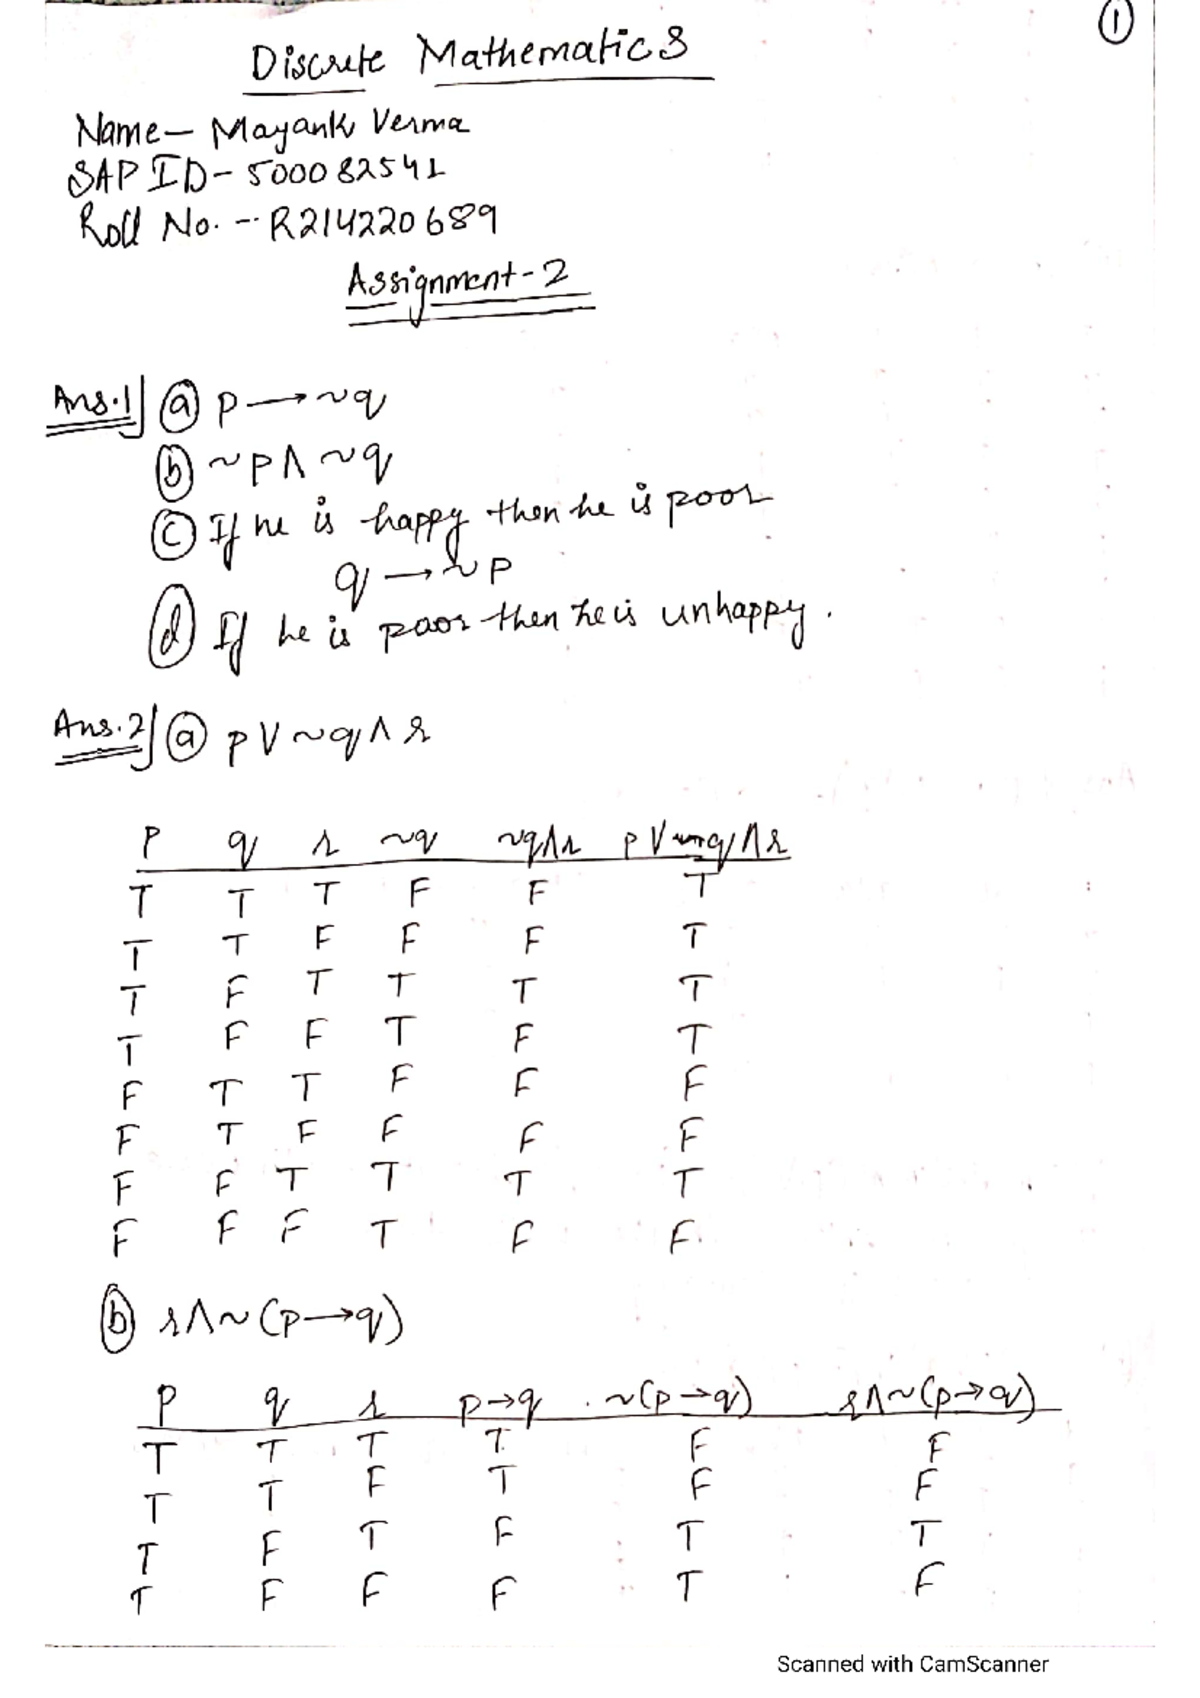 ①
Discrete Mathematics
Name- Mayank Verma
SAP ID- 500082541
Roll No. -- R214220689
Assignment-2
Ans.1] ⓐ p → ~q
ⓑ ~p ∧ ~q
ⓒ If he is happy then he is poor
q → ~p
ⓓ If he is poor then he is unhappy.
Ans.2] ⓐ p ∨ ~q ∧ r
p q r ~q ~q∧r p ∨ ~q ∧ r
T T T F F T
T T F F F T
T F T T T T
T F F T F T
F T T F F F
F T F F F F
F F T T T T
F F F T F F
ⓑ r ∧ ~(p → q)
p q r p→q ~(p→q) r∧~(p→q)
T T T T F F
T T F T F F
T F T F T T
T F F F T F
Scanned with CamScanner